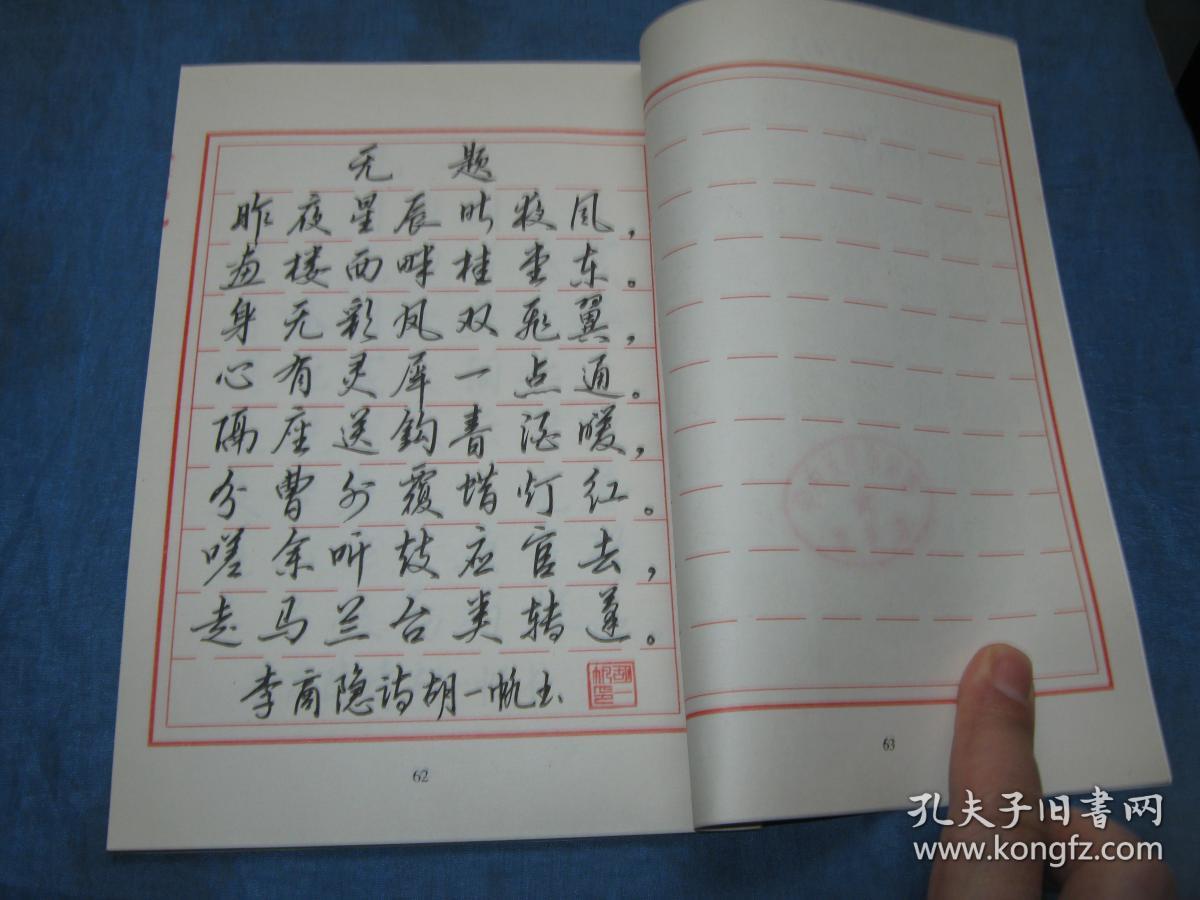 无题
昨夜星辰昨夜风，
画楼西畔桂堂东。
身无彩凤双飞翼，
心有灵犀一点通。
隔座送钩春酒暖，
分曹射覆蜡灯红。
嗟余听鼓应官去，
走马兰台类转蓬。
李商隐诗胡一帆书
胡一帆印
62
63
孔夫子旧书网
www.kongfz.com